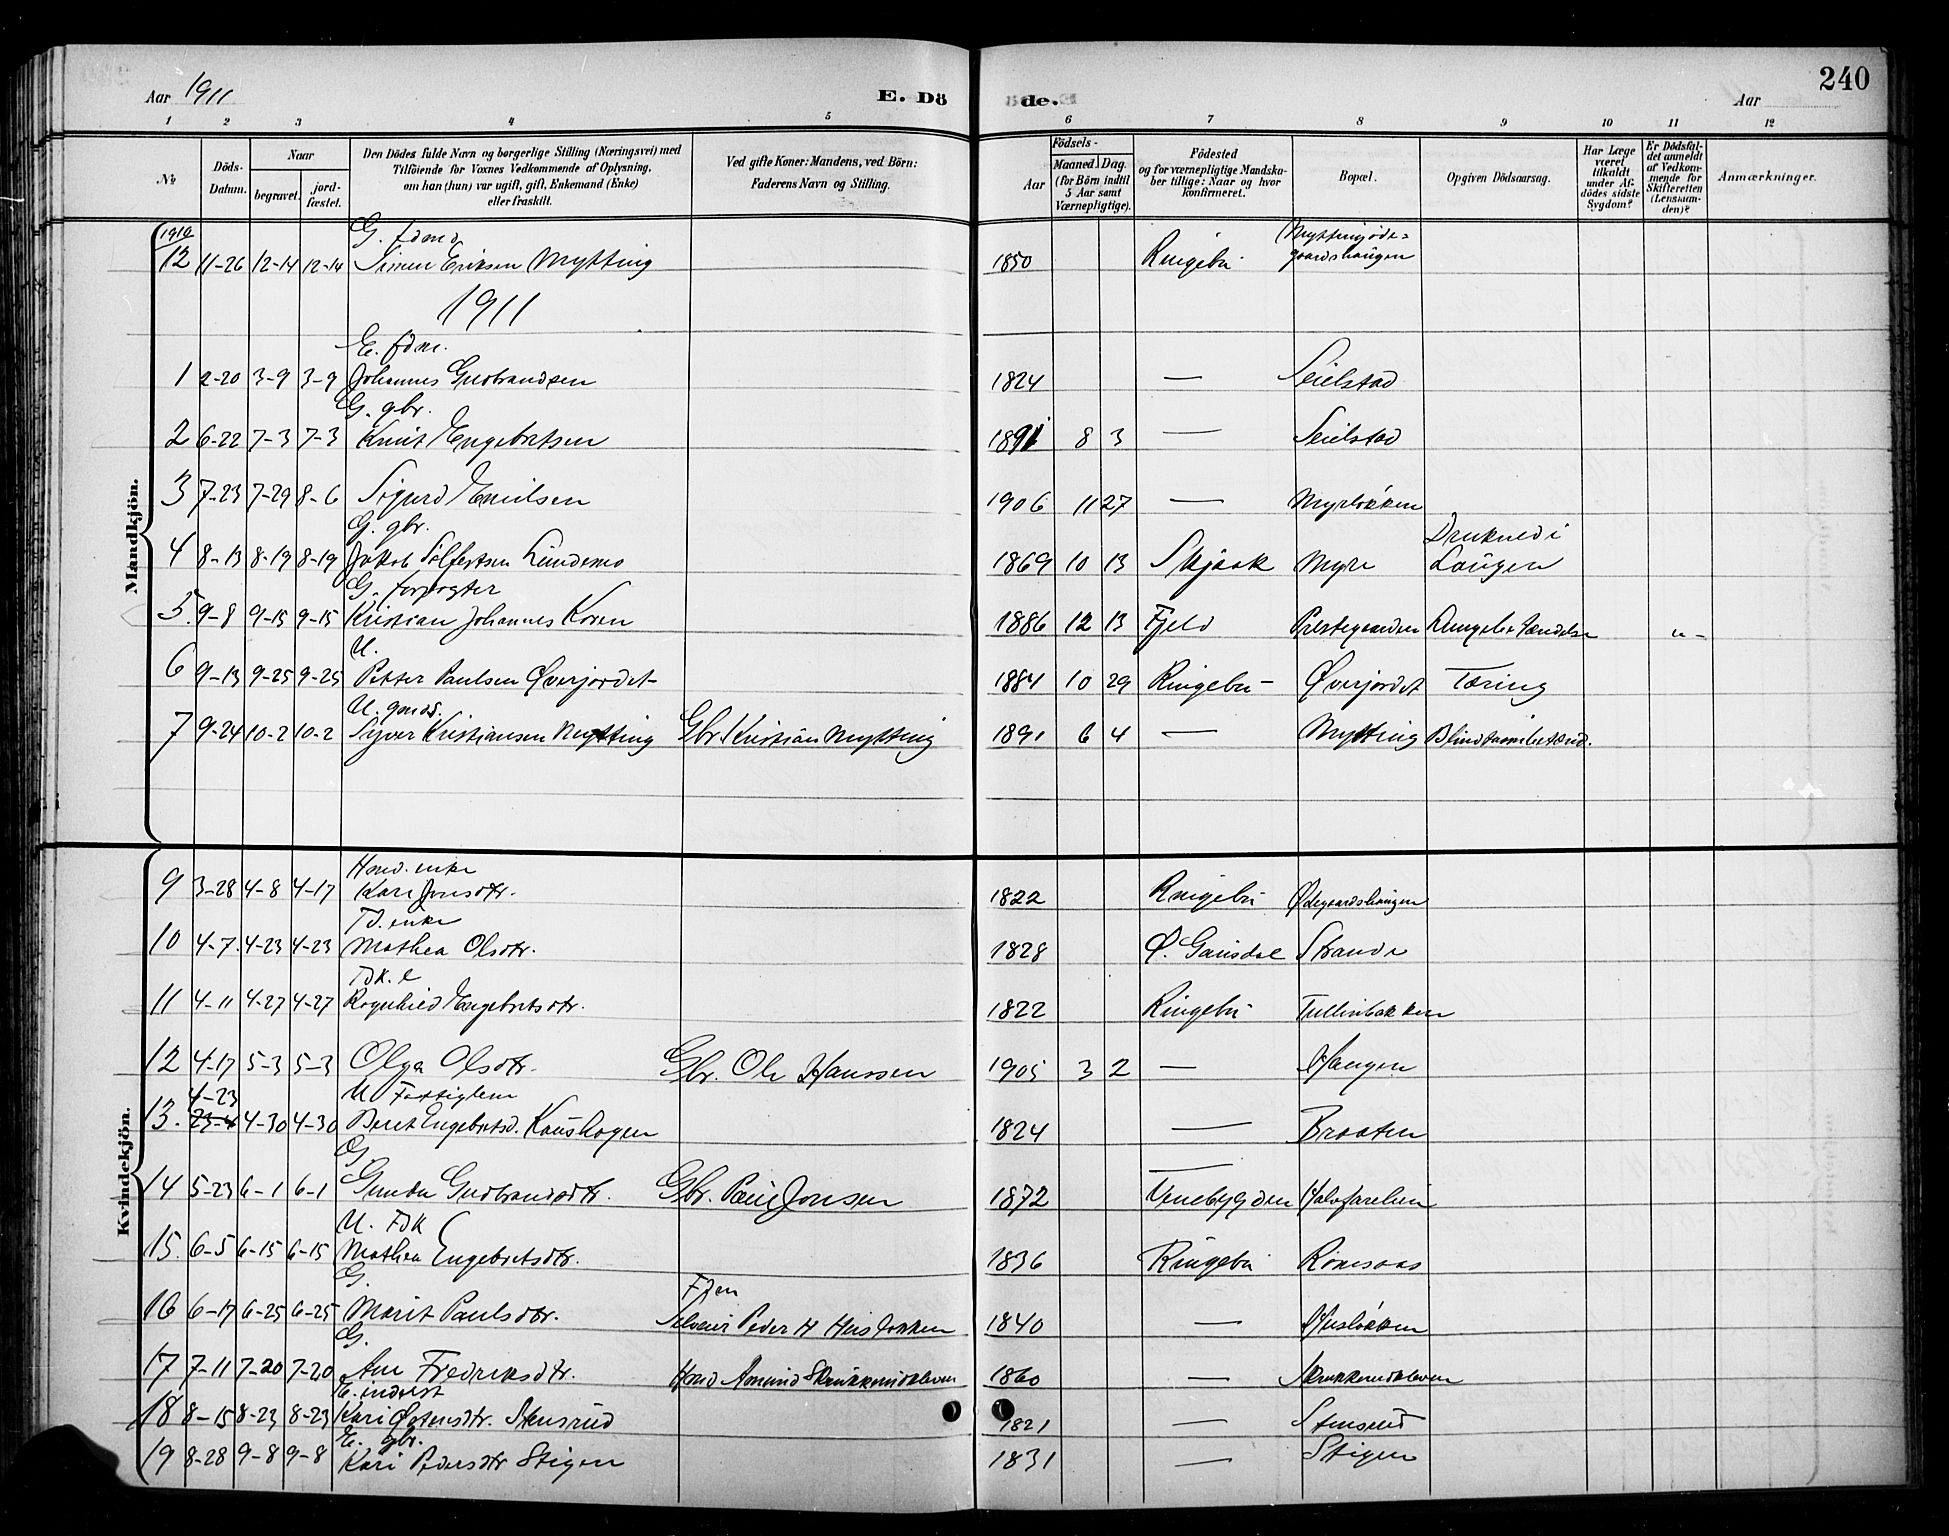 240
Aar 1911
E. Dö
de.
Aar
1 2 3 4 5 6 7 8 9 10 11 12
№
Döds-Datum.
Naar
begravet.
jord-fæstet.
Den Dödes fulde Navn og borgerlige Stilling (Næringsvei) med
Tilföiende for Voxnes Vedkommende af Oplysning,
om han (hun) var ugift, gift, Enkemand (Enke)
eller fraskilt.
Ved gifte Koner: Mandens, ved Börn:
Faderens Navn og Stilling.
Födsels-
Aar
Maaned. Dag.
(for Börn indtil
5 Aar samt
Værnepligtige).
Födested
og for værnepligtige Mandska-
ber tillige: Naar og hvor
konfirmeret.
Bopæl.
Opgiven Dödsaarsag.
Har Læge
været
tilkaldt
under Af-
dödes sidste
Sygdom?
Er Dödsfal-
det anmeldt
af Vedkom-
mende for
Skifteretten
(Lensman-
den)?
Anmærkninger.
Mandkjön.
1910
12 11-26 12-14 12-14 Simen Eriksen Mytting 1850 Ringebu
1911
E. fdm.
1 2-20 3-9 3-9 Johannes Gudbrandsen 1824 — Seielstad
G. gbr.
2 6-22 7-3 7-3 Knut Engebretsen 1891 8 3 — Seielstad
3 7-23 7-29 8-6 Sigurd Emilsen 1906 11 27 — Myrløkken
G. gbr. Drukned i
4 8-13 8-19 8-19 Jakob Lundemo 1869 10 13 Skjaak Myre Laugen
G. forpagter
5. 9-8 9-15 9-15 Kristian Johannes Koren 1886 12 13 Fjeld Prestegaarden "-
U.
6 9-13 9-25 9-25 Petter Paulsen Øverjordet 1884 10 29 Ringebu Øverjordet Tæring
U. gmds.
7 9-24 10-2 10-2 Syver Kristiansen Mytting Gbr. Kristian Mytting 1891 6 4 — Mytting Blindtarmbetænd.
Kvindekjön.
Hmd. enke
9 3-28 4-8 4-17 Kari Jonsdtr. 1822 Ringebu Ødegaardshaugen
Fd. enke
10 4-7 4-23 4-23 Mathea Olsdtr. 1828 Ø. Gausdal Strande
Fdk. e
11 4-11 4-27 4-27 Ragnhild Engebretsdtr. 1822 Ringebu Tullinbakken
12 4-17 5-3 5-3 Olga Olsdtr. Gbr. Ole Hanssen 1905 3 2 — Haugen
4-23 U. Fattiglem
13. 23-4 4-30 4-30 Beret Engebretsd. Kaushagen 1824 — Braaten
G.
14 5-23 6-1 6-1 Gunda Gudbrandsdtr. Gbr. Paul Jonsen 1872 Venebygden
U. Fdk
15. 6-5 6-15 6-15 Mathea Engebretsdtr. 1836 Ringebu
G. Fdm
16 6-17 6-25 6-25 Marit Paulsdtr. Peder H Husløkken 1840 — Husløkken
G.
17 7-11 7-20 7-20 Ane Fredriksdtr. Hmd Amund Skrukkerudkleven 1860 — Skrukkerudkleven
E. inderst
18 8-15 8-23 8-23 Kari Østensdtr. Stensrud 1821 — Stensrud
E. gbr.
19 8-28 9-8 9-8 Kari Pedersdtr Stigen 1831 — Stigen